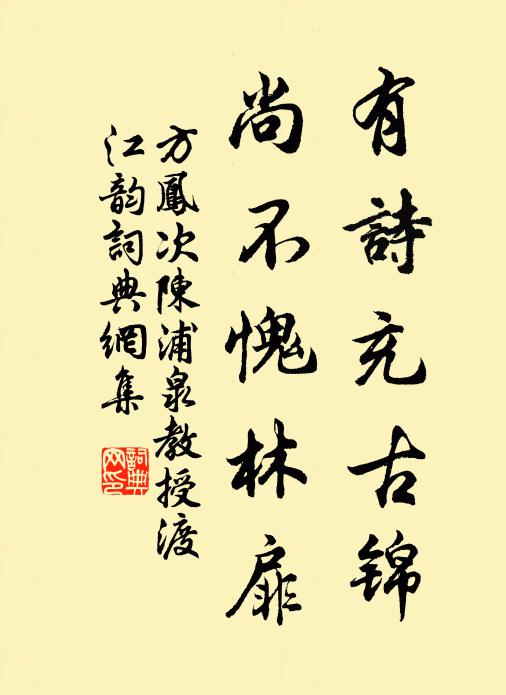 有詩充古錦
尚不愧林扉
方鳳次陳浦泉教授渡
江韵詞典網集
詞典
网印